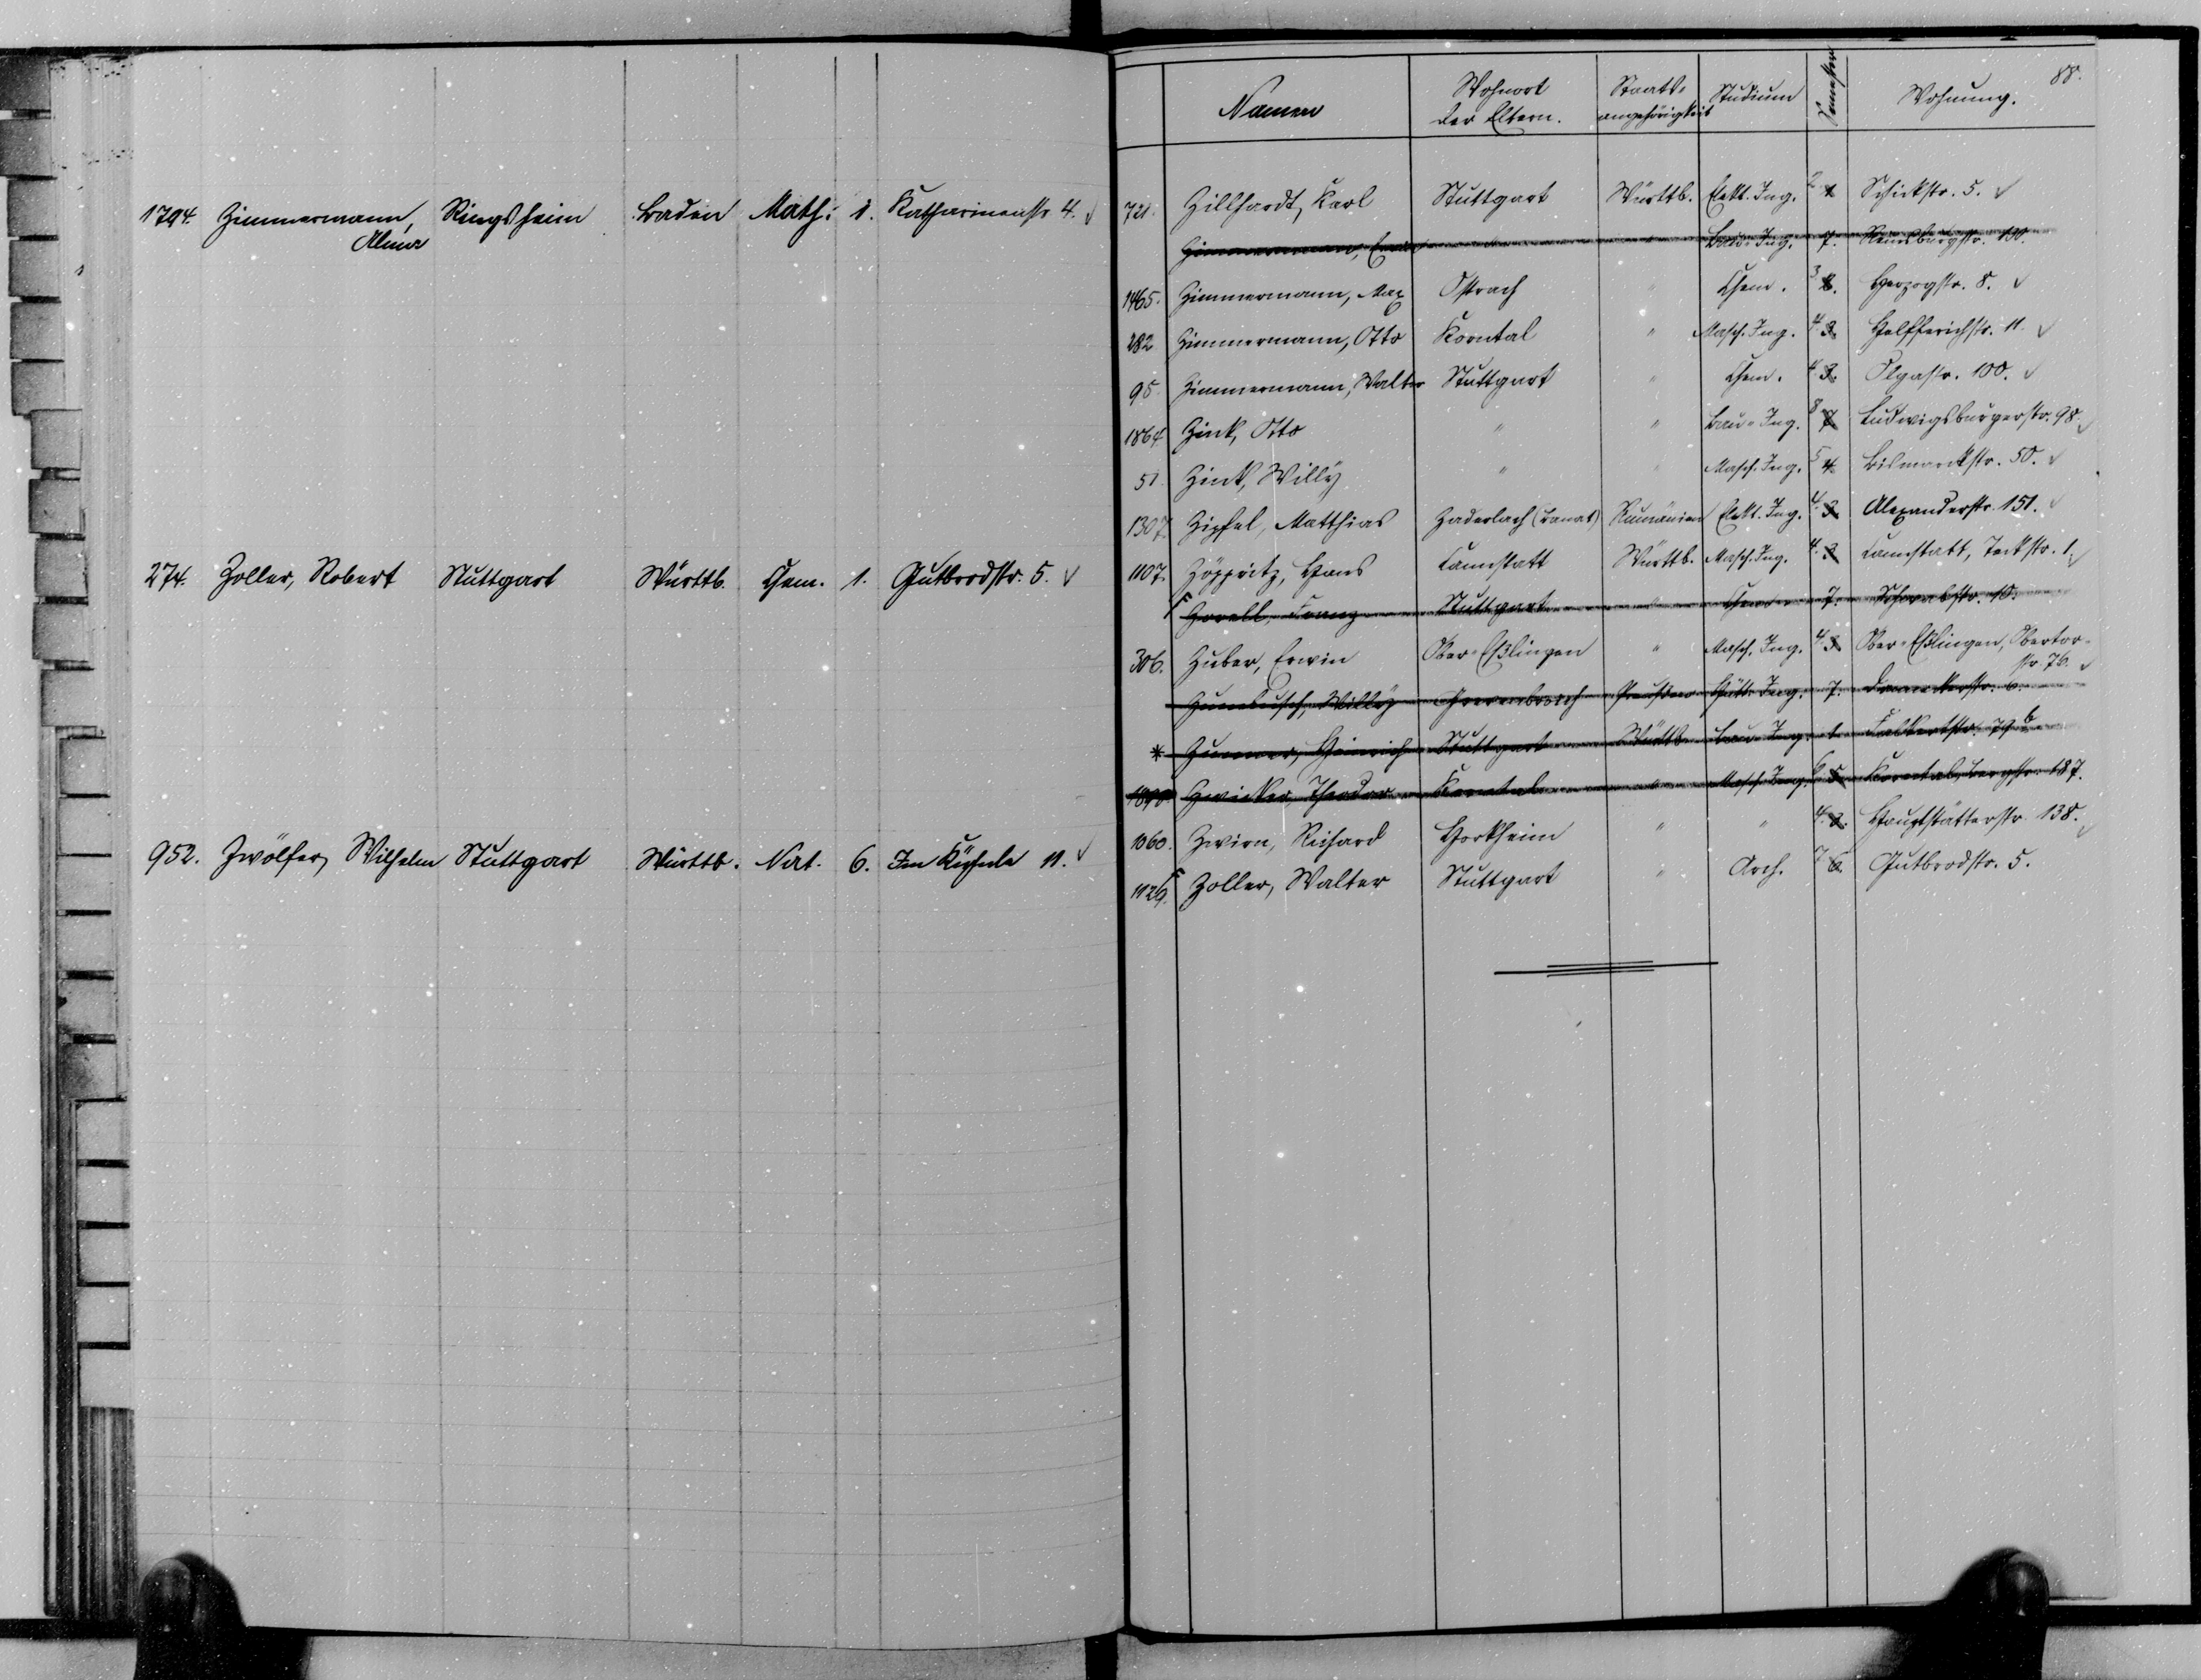 1794. Zimmermann, Ringsheim Baden Math. 1. Katharinenstr. 4. ✓
Alma
274. Zoller, Robert Stuttgart Württb. Chem. 1. Gutbrodstr. 5. ✓
952. Zwölfer, Wilhelm Stuttgart Württb. Nat. 6. Im Kühnle 11. ✓
88.
Namen Wohnort der Eltern. Staats-angehörigkeit Studium Semester Wohnung.
721. Zillhardt, Karl Stuttgart Württb. Elekt. Ing. 2 1 Schickstr. 5. ✓
Zimmermann, " " Bau-Ing. 7. Reinsburgstr. 130.
1465. Zimmermann, Max Ostrach " Chem. 3 Herzogstr. 8. ✓
282 Zimmermann, Otto Korntal " Masch. Ing. 4. 3. Helfferichstr. 11. ✓
95. Zimmermann, Walter Stuttgart " Chem. 4. 3. Olgastr. 100. ✓
1864 Zink, Otto " " Bau-Ing. 8 7 Ludwigsburgerstr. 98. ✓
51. Zink, Willy " " Masch. Ing. 5 4. Bismarckstr. 50. ✓
1307. Zipfel, Matthias Zaderlach (Banat) Rumänien Elekt. Ing. 4. 3. Alexanderstr. 151. ✓
1107. Zöppritz, Hans Cannstatt Württb. Masch. Ing. 4. 3. Cannstatt, Teckstr. 1. ✓
Zorell, Franz Stuttgart " Chem. 7. Schwabstr. 10.
306. Zuber, Erwin Ober-Eßlingen " Masch. Ing. 4. 3. Ober-Eßlingen, Obertor-
str. 76. ✓
Zumbusch, Willy Grevenbroich Preußen Hütt. Ing. 7. 6.
* Zummer, Heinrich Stuttgart Württb. Bau-Ing. 1. Falkertstr. 79 b
1890. Zwicker, Theodor Korntal " Masch. Ing. 6. 5. Korntal, Bergstr. 187.
1060. Zwirn, Richard Horkheim " " 4. 3. Hauptstätterstr. 138. ✓
1126. Zoller, Walter Stuttgart " Arch. 7 6. Gutbrodstr. 5.